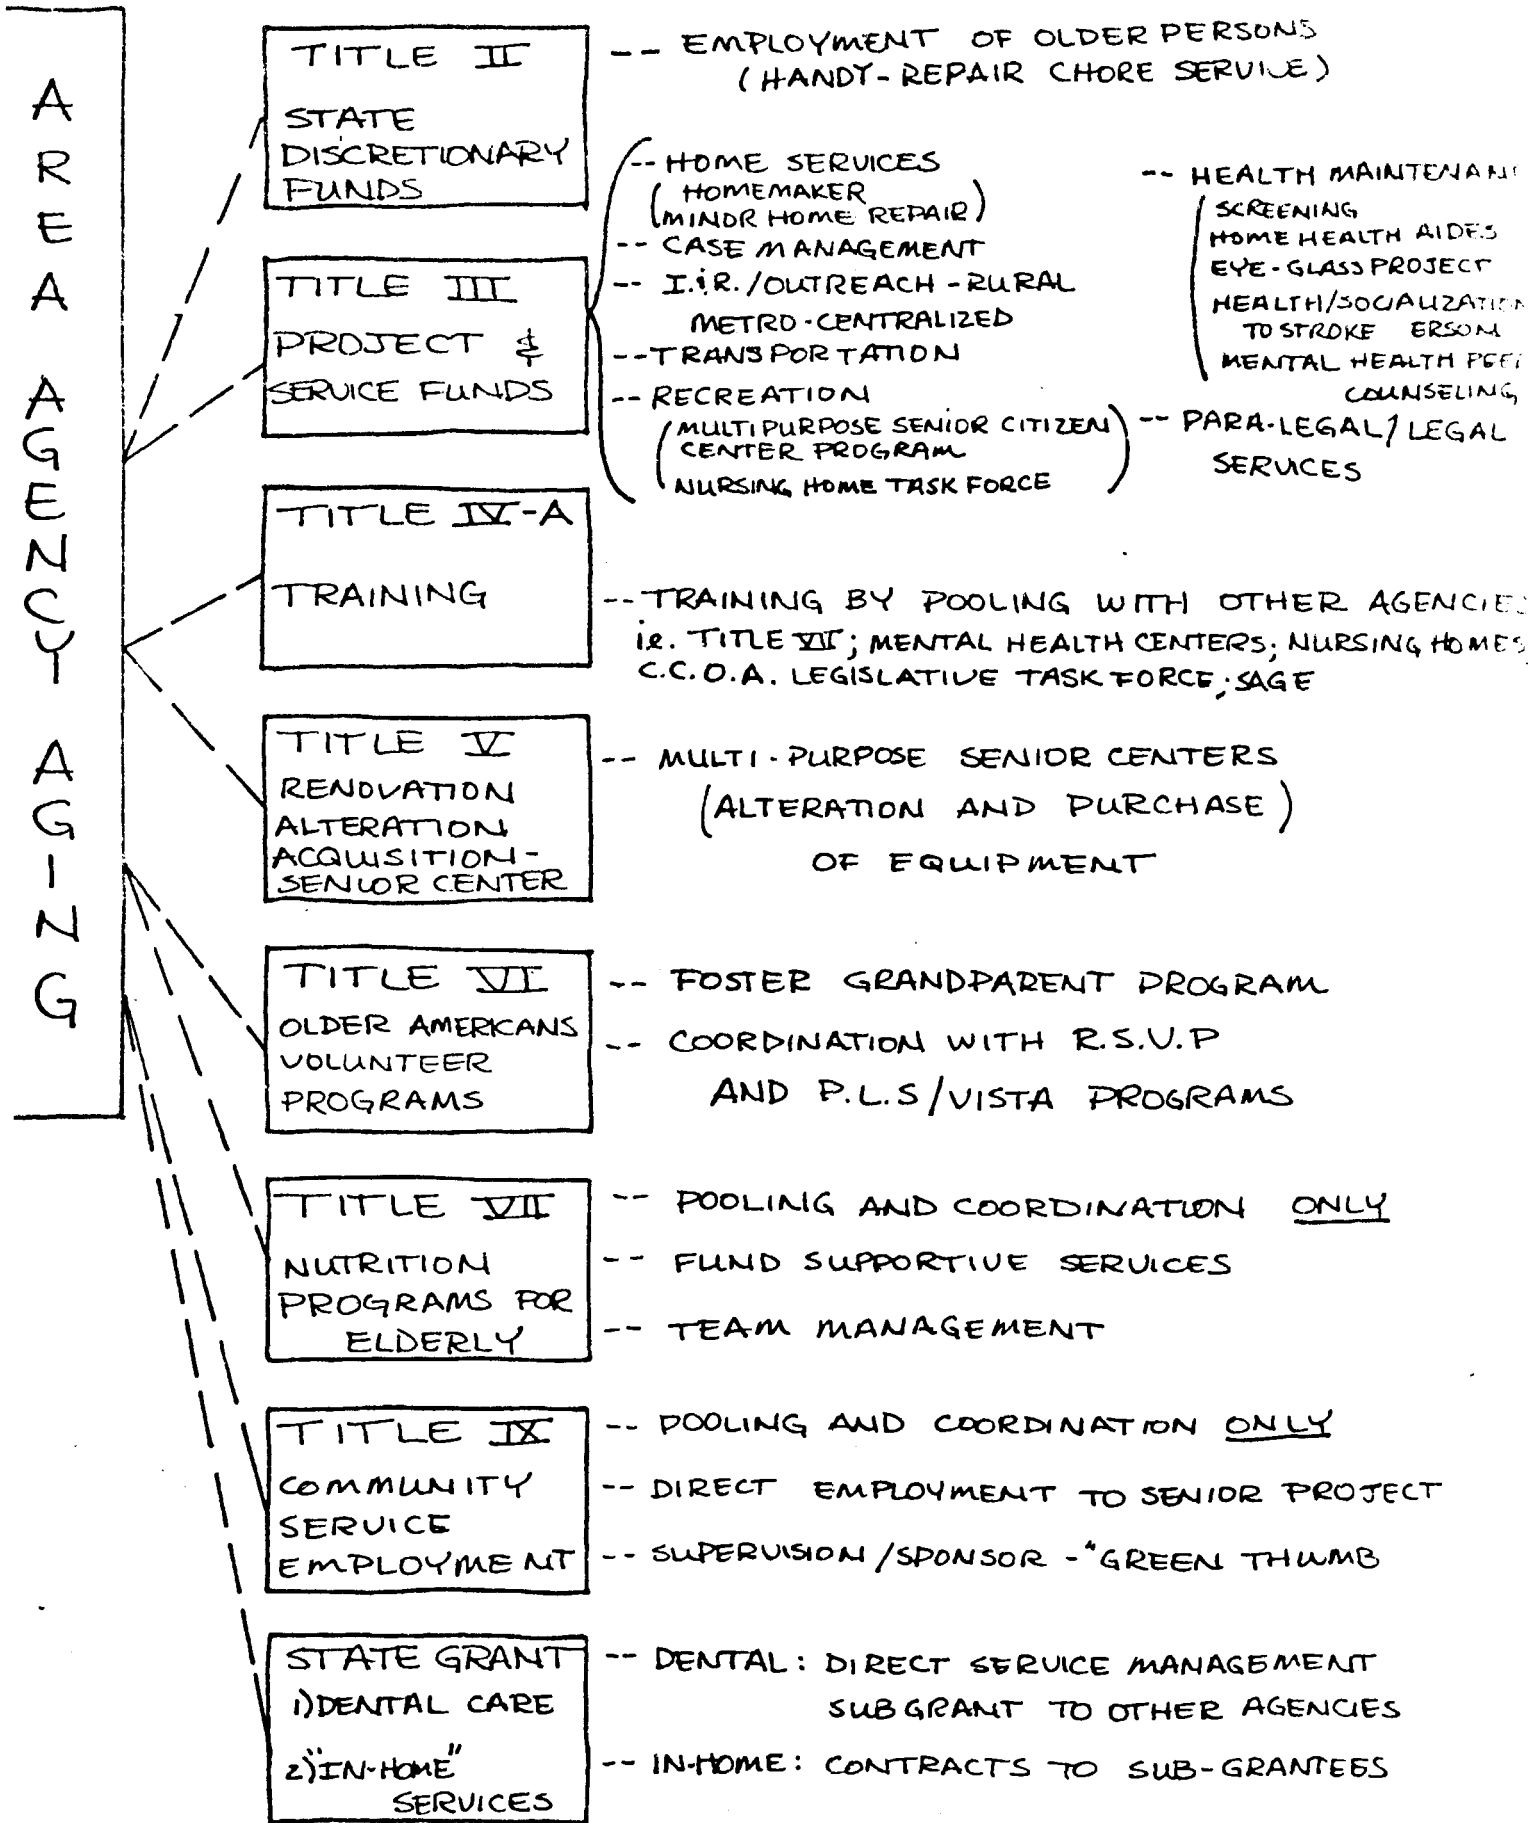 AREA AGENCY AGING
TITLE II
STATE
DISCRETIONARY
FUNDS
-- EMPLOYMENT OF OLDER PERSONS
(HANDY-REPAIR CHORE SERVICE)
TITLE III
PROJECT &
SERVICE FUNDS
-- HOME SERVICES
(HOMEMAKER
MINOR HOME REPAIR)
-- CASE MANAGEMENT
-- I.&R./OUTREACH - RURAL
METRO-CENTRALIZED
-- TRANSPORTATION
-- RECREATION
(MULTIPURPOSE SENIOR CITIZEN
CENTER PROGRAM
NURSING HOME TASK FORCE)
-- HEALTH MAINTENAN
(SCREENING
HOME HEALTH AIDES
EYE-GLASS PROJECT
HEALTH/SOCIALIZATION
TO STROKE ERSON
MENTAL HEALTH PEE
COUNSELING
-- PARA-LEGAL/LEGAL
SERVICES
TITLE IV-A
TRAINING
-- TRAINING BY POOLING WITH OTHER AGENCIES
ie. TITLE VII; MENTAL HEALTH CENTERS; NURSING HOMES
C.C.O.A. LEGISLATIVE TASK FORCE; SAGE
TITLE V
RENOVATION
ALTERATION
ACQUISITION-
SENIOR CENTER
-- MULTI-PURPOSE SENIOR CENTERS
(ALTERATION AND PURCHASE)
OF EQUIPMENT
TITLE VI
OLDER AMERICANS
VOLUNTEER
PROGRAMS
-- FOSTER GRANDPARENT PROGRAM
-- COORDINATION WITH R.S.V.P
AND P.L.S/VISTA PROGRAMS
TITLE VII
NUTRITION
PROGRAMS FOR
ELDERLY
-- POOLING AND COORDINATION ONLY
-- FUND SUPPORTIVE SERVICES
-- TEAM MANAGEMENT
TITLE IX
COMMUNITY
SERVICE
EMPLOYMENT
-- POOLING AND COORDINATION ONLY
-- DIRECT EMPLOYMENT TO SENIOR PROJECT
-- SUPERVISION/SPONSOR - "GREEN THUMB
STATE GRANT
1) DENTAL CARE
2) "IN-HOME"
SERVICES
-- DENTAL: DIRECT SERVICE MANAGEMENT
SUBGRANT TO OTHER AGENCIES
-- IN-HOME: CONTRACTS TO SUB-GRANTEES